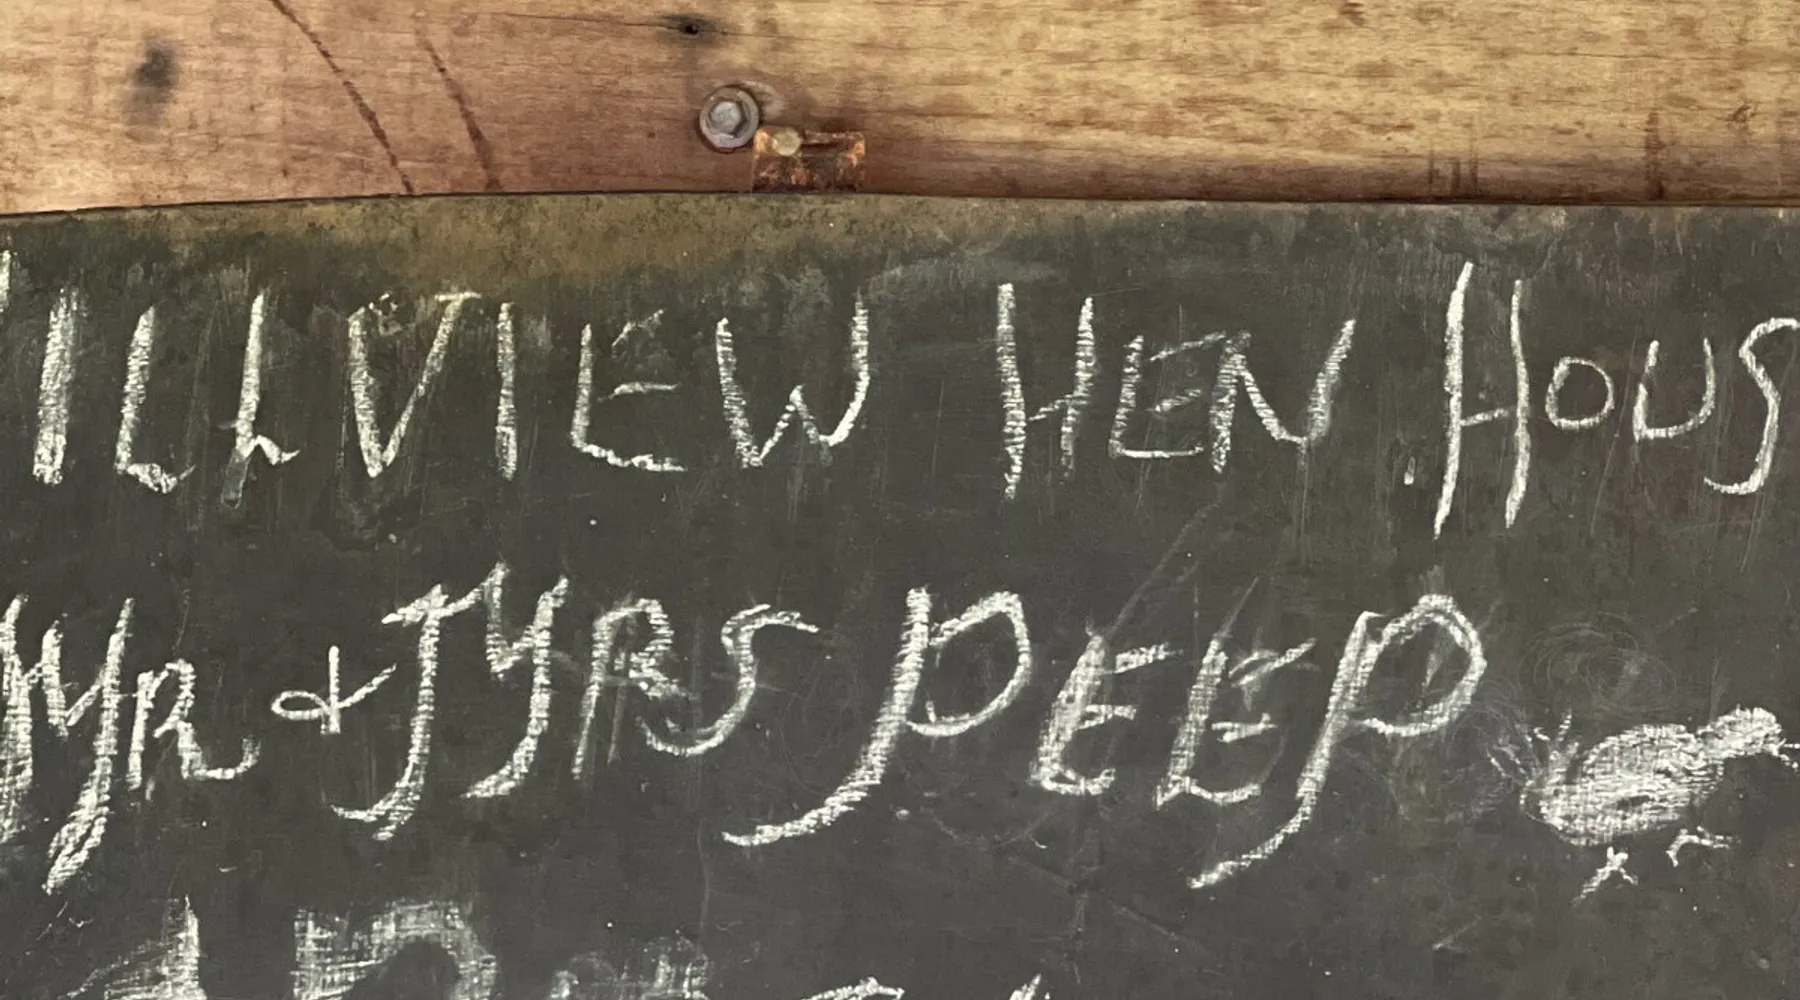 ILLVIEW HEN HOUS
MR & MRS PEEP